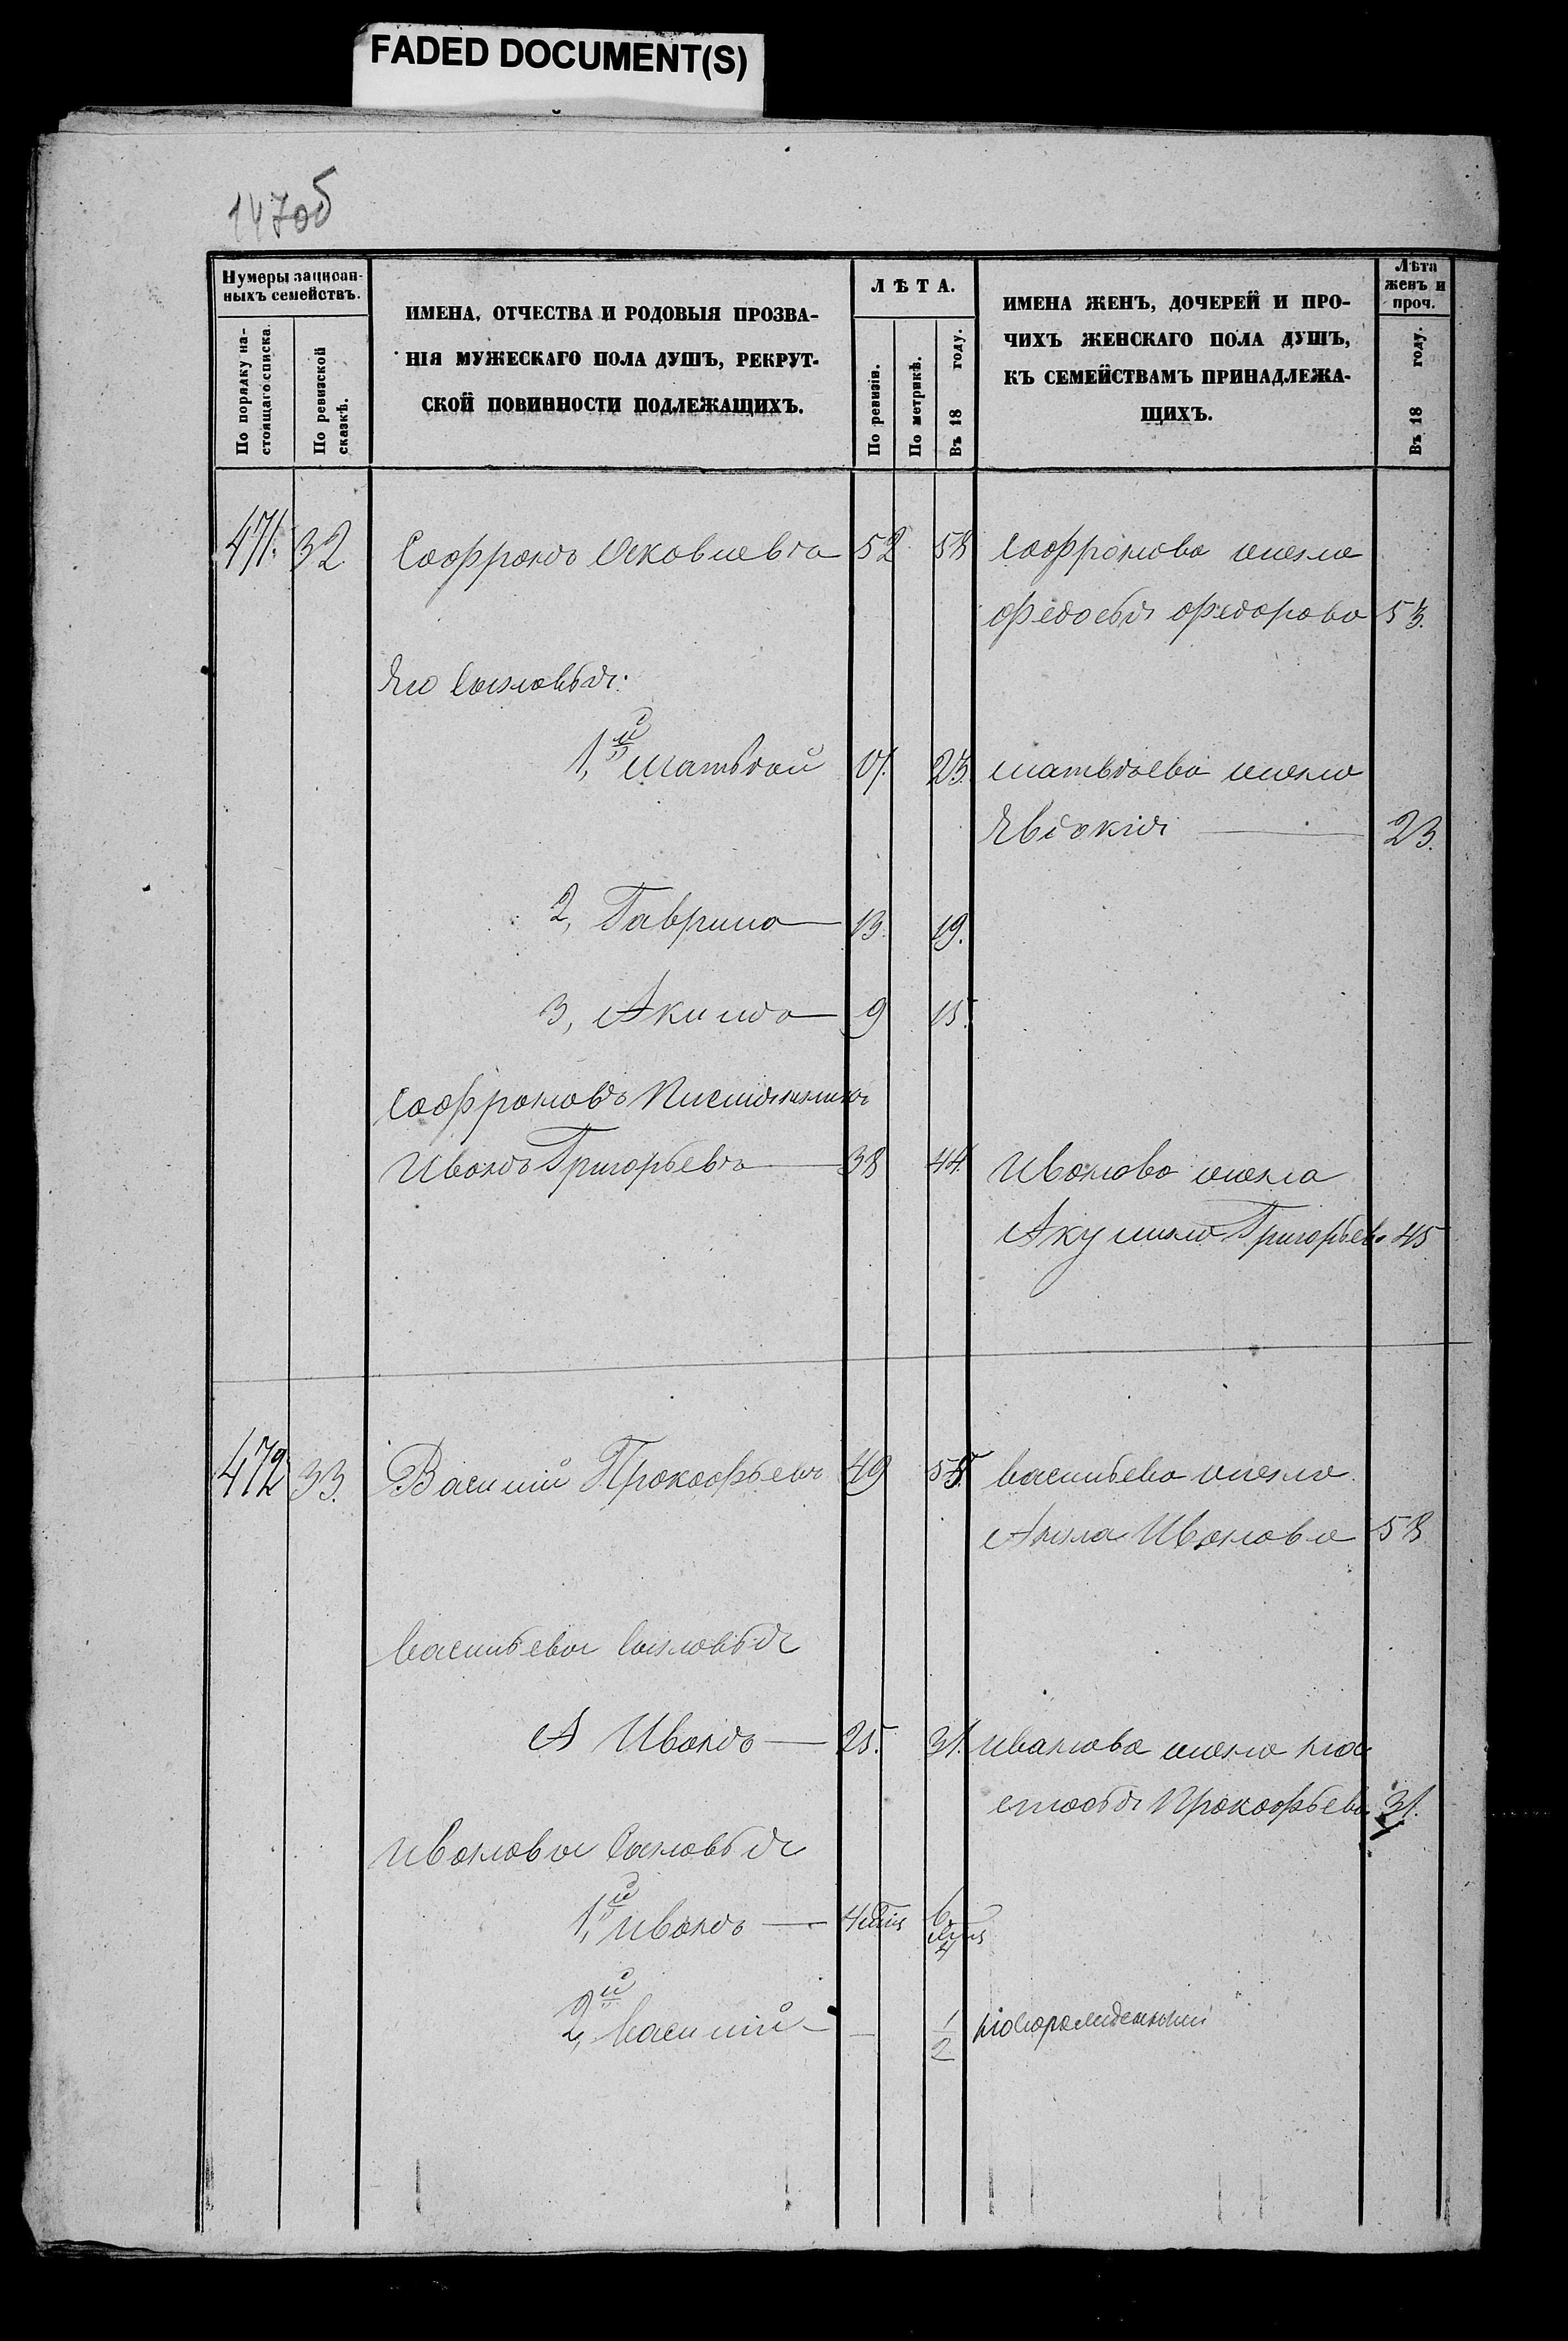 FADED DOCUMENT(S)
147об
Нумеры записан-
ныхъ семействъ.
По порядку на-
стоящаго списка.
По ревизской
сказкѣ.
ИМЕНА, ОТЧЕСТВА И РОДОВЫЯ ПРОЗВА-
НІЯ МУЖЕСКАГО ПОЛА ДУШЪ, РЕКРУТ-
СКОЙ ПОВИННОСТИ ПОДЛЕЖАЩИХЪ.
ЛѢТА.
По ревизіи.
По метрикѣ.
Въ 18 году.
ИМЕНА ЖЕНЪ, ДОЧЕРЕЙ И ПРО-
ЧИХЪ ЖЕНСКАГО ПОЛА ДУШЪ,
КЪ СЕМЕЙСТВАМЪ ПРИНАДЛЕЖА-
ЩИХЪ.
Лѣта
женъ и
проч.
Въ 18 году.
471. 32 Софронъ Яковлевъ 52 58 Софронова жена
Федосья Федорова 53.
Его Сыновья:
1,й Матвѣй 17. 23. Матвѣева жена
Евдокія 23.
2, Гаврило 13. 19.
3, Акимъ 9 15.
Софроновъ Племянникъ
Иванъ Григорьевъ 38 44. Иванова жена
Акулина Григорьева 45
472 33. Василий Прокофьевъ 49 55. Васильева жена
Анна Иванова 58
Васильевы Сыновья
А Иванъ 25. 31. Иванова жена Нас
тасья Прокофьева 31.
Ивановы Сыновья
1,й Иванъ
2,й Василий — 1/2 новорожденный